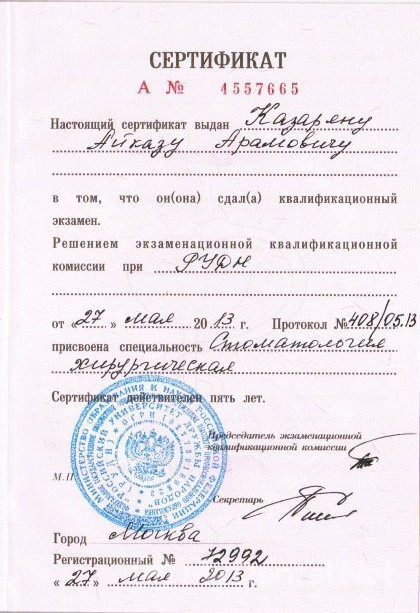 СЕРТИФИКАТ
А № 4557665
Настоящий сертификат выдан Казаряну
Айказу Арамовичу
в том, что он(она) сдал(а) квалификационный
экзамен.
Решением экзаменационной квалификационной
комиссии при РУДН
от «27» мая 2013 г. Протокол №408/05.13
присвоена специальность Стоматология
хирургическая
Сертификат действителен пять лет.
Председатель экзаменационной
квалификационной комиссии
М.П.
Секретарь
Город Москва
Регистрационный № 72992
«27» мая 2013 г.